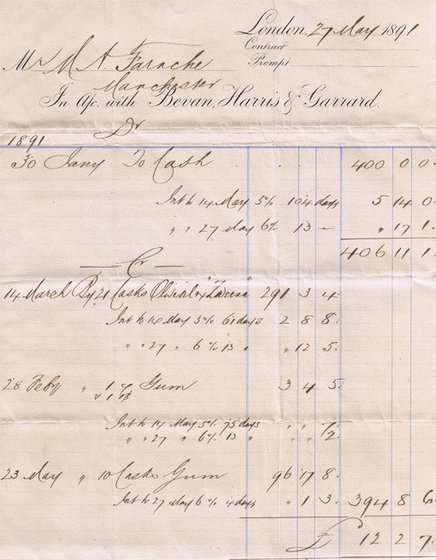 London, 27 May 1891
Contract
Prompt
Mr M A Farache
Manchester
In A/c. with Bevan, Harris & Garrard.
Dr
1891
30 Jany To Cash . . . 400 0 0
Int to 14 May 5% 104 days 5 14 0
" " 27 May 6% 13 — " 17 1
406 11 1
Cr
14 March By 21 Casks 291 3 4
Int to 14 May 5% 61 days 2 8 8
" " 27 " 6% 13 " " 12 5
28 Feby " Gum 3 4 5
Int to 14 May 5% 75 days " " 7
" " 27 " 6% 13 " " " 2
23 May " 10 Casks Gum 96 17 8
Int to 27 May 6% 4 days " 1 3 394 8 6
£ 12 2 7